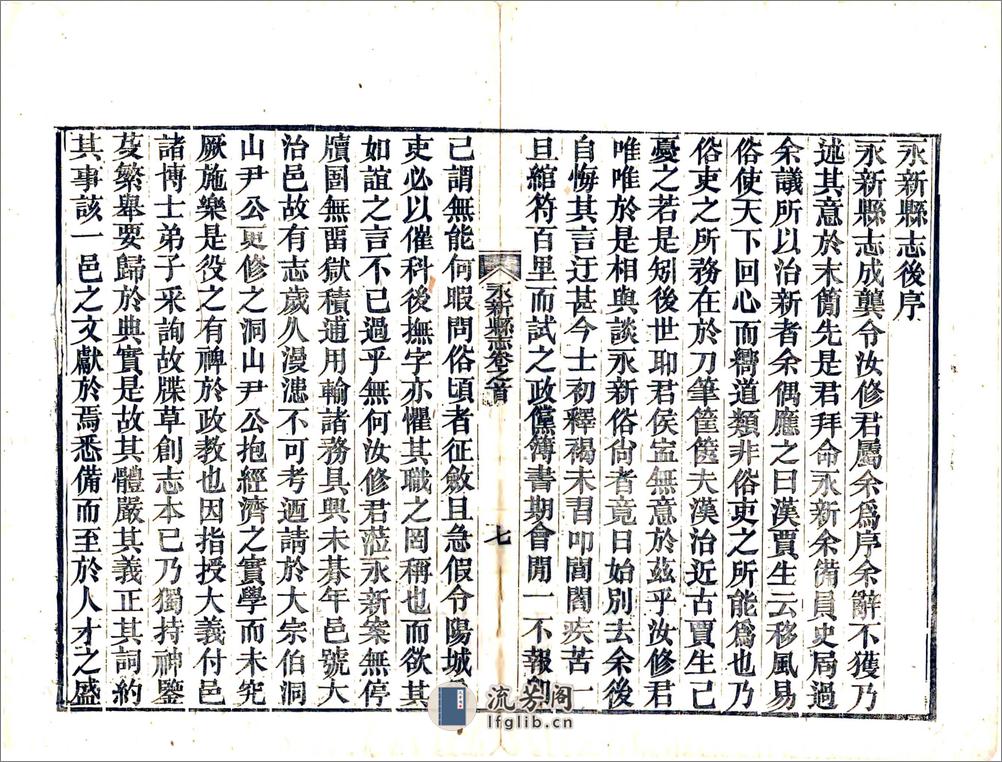 永新縣志後序
永新縣志成龔令汝修君屬余爲序余辭不獲乃
述其意於末簡先是君拜命永新余備員史局過
余議所以治新者余偶應之曰漢賈生云移風易
俗使天下回心而嚮道類非俗吏之所能爲也乃
俗吏之所務在於刀筆筐篋夫漢治近古賈生已
憂之若是矧後世耶君侯寍無意於茲乎汝修君
唯唯於是相與談永新俗尙者竟日始別去余後
自悔其言迂甚今士初釋褐未習叩閭閻疾苦一
旦綰符百里而試之政黨簿書期會閒一不報則
已謂無能何暇問俗頃者征斂且急假令陽城
吏必以催科後撫字亦懼其職之罔稱也而欲其
如誼之言不已過乎無何汝修君涖永新案無停
牘圄無畱獄積逋用輸諸務具興未朞年邑號大
治邑故有志歲久漫漶不可考迺請於大宗伯洞
山尹公更修之洞山尹公抱經濟之實學而未究
厥施樂是役之有裨於政教也因指授大義付邑
諸博士弟子采詢故牒草創志本已乃獨持神鑒
芟繁舉要歸於典實是故其體嚴其義正其詞約
其事該一邑之文獻於焉悉備而至於人才之盛
永新縣志卷之首
七
流芳阁
lfglib.cn